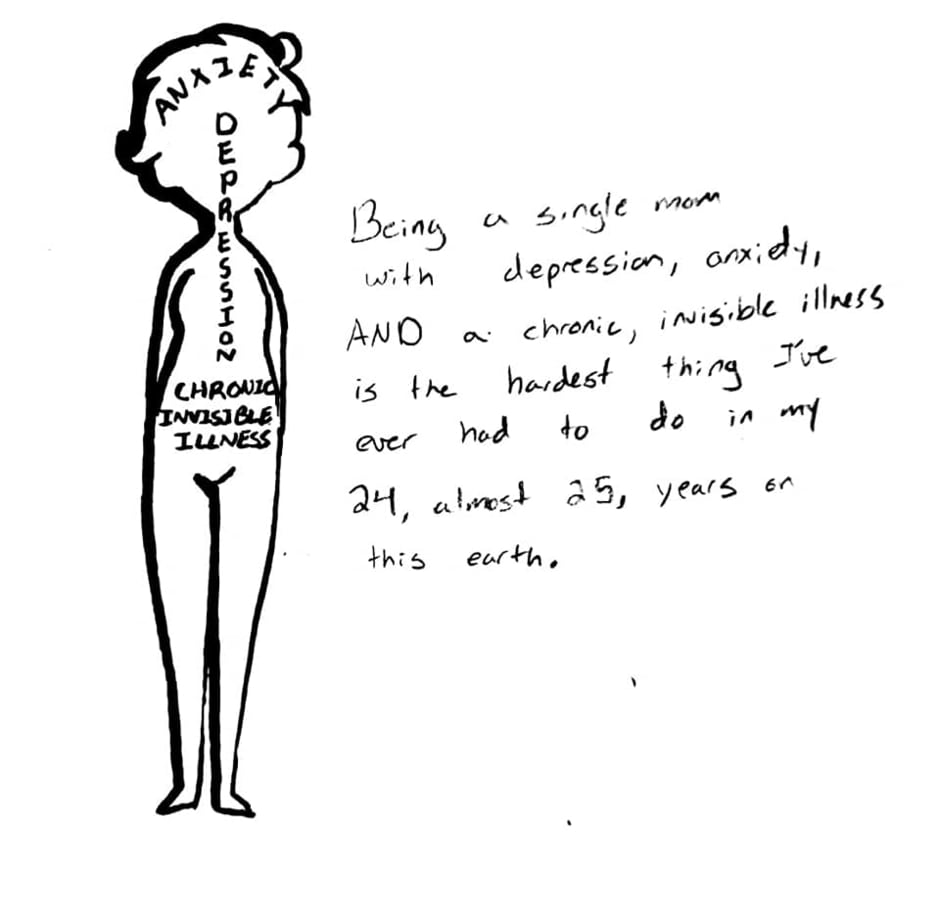 ANXIETY
DEPRESSION
CHRONIC
INVISIBLE
ILLNESS
Being a single mom
with depression, anxiety,
AND a chronic, invisible illness
is the hardest thing I've
ever had to do in my
24, almost 25, years on
this earth.